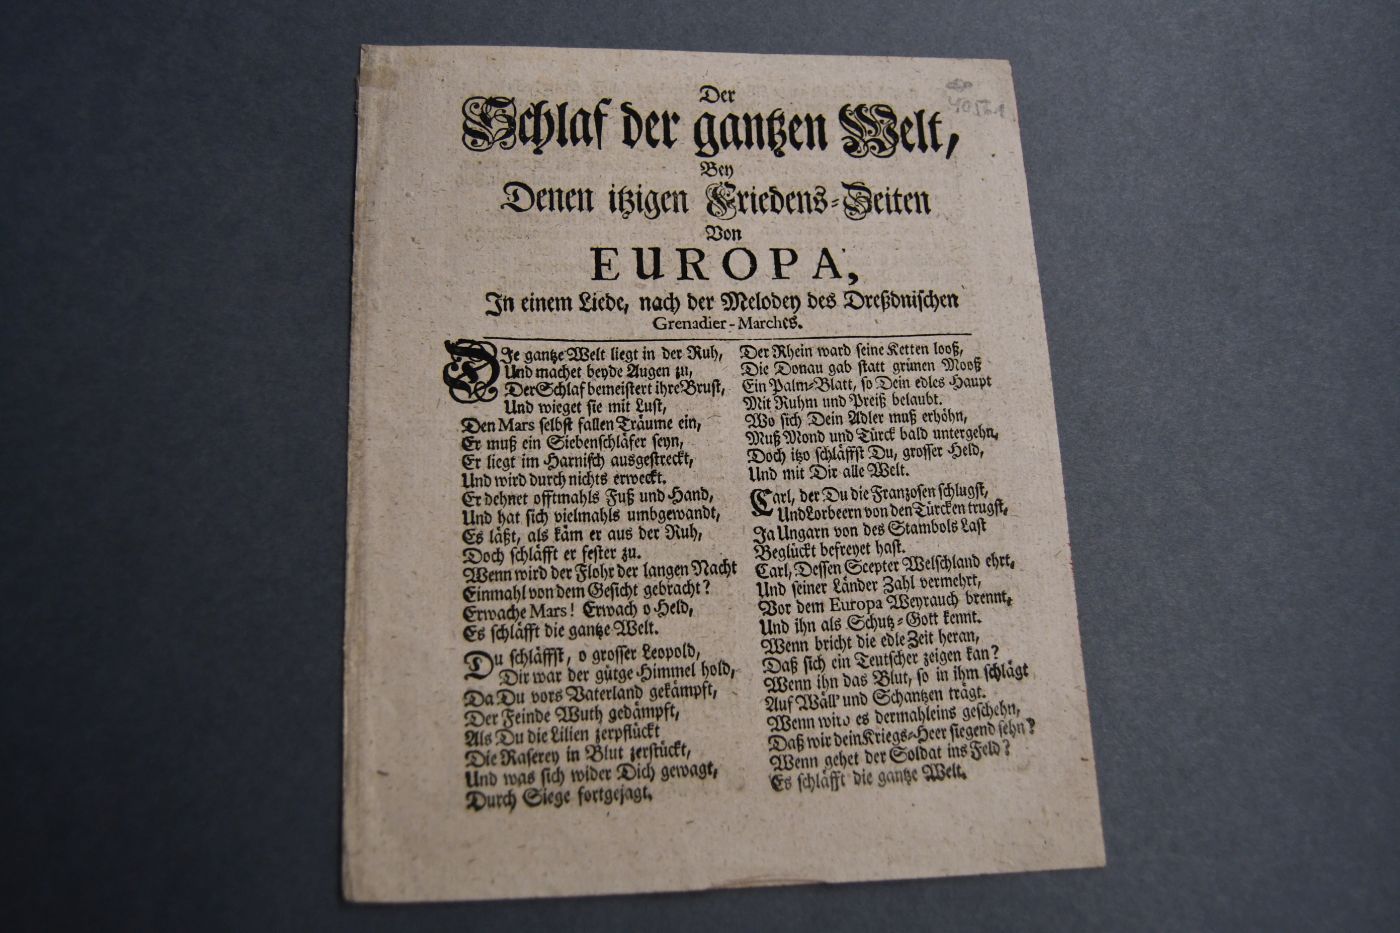 Der
Schlaf der gantzen Welt,
Bey
Denen itzigen Friedens-Zeiten
Von
EUROPA,
In einem Liede, nach der Melodey des Dreßdnischen
Grenadier-Marches.
DIe gantze Welt liegt in der Ruh,
Und machet beyde Augen zu,
Der Schlaf bemeistert ihre Brust,
Und wieget sie mit Lust,
Den Mars selbst fallen Träume ein,
Er muß ein Siebenschläfer seyn,
Er liegt im Harnisch ausgestreckt,
Und wird durch nichts erweckt.
Er dehnet offtmahls Fuß und Hand,
Und hat sich vielmahls umbgewandt,
Es läßt, als käm er aus der Ruh,
Doch schläfft er fester zu.
Wenn wird der Flohr der langen Nacht
Einmahl von dem Gesicht gebracht?
Erwache Mars! Erwach o Held,
Es schläfft die gantze Welt.
Du schläffst, o grosser Leopold,
Dir war der gütge Himmel hold,
Da Du vors Vaterland gekämpft,
Der Feinde Wuth gedämpft,
Als Du die Lilien zerpflückt
Die Raserey in Blut zerstückt,
Und was sich wider Dich gewagt,
Durch Siege fortgejagt.
Der Rhein ward seine Ketten looß,
Die Donau gab statt grünen Mooß
Ein Palm-Blatt, so Dein edles Haupt
Mit Ruhm und Preiß belaubt.
Wo sich Dein Adler muß erhöhn,
Muß Mond und Türck bald untergehn,
Doch itzo schläffst Du, grosser Held,
Und mit Dir alle Welt.
Carl, der Du die Franzosen schlugst,
Und Lorbeern von den Türcken trugst,
Ja Ungarn von des Stambols Last
Beglückt befreyet hast.
Carl, Dessen Scepter Welschland ehrt,
Und seiner Länder Zahl vermehrt,
Vor dem Europa Weyrauch brennt,
Und ihn als Schutz-Gott kennt.
Wenn bricht die edle Zeit heran,
Daß sich ein Teutscher zeigen kan?
Wenn ihn das Blut, so in ihm schlägt
Auf Wäll und Schantzen trägt.
Wenn wird es dermahleins geschehn,
Daß wir dein Kriegs-Heer siegend sehn?
Wenn gehet der Soldat ins Feld?
Es schläfft die gantze Welt.